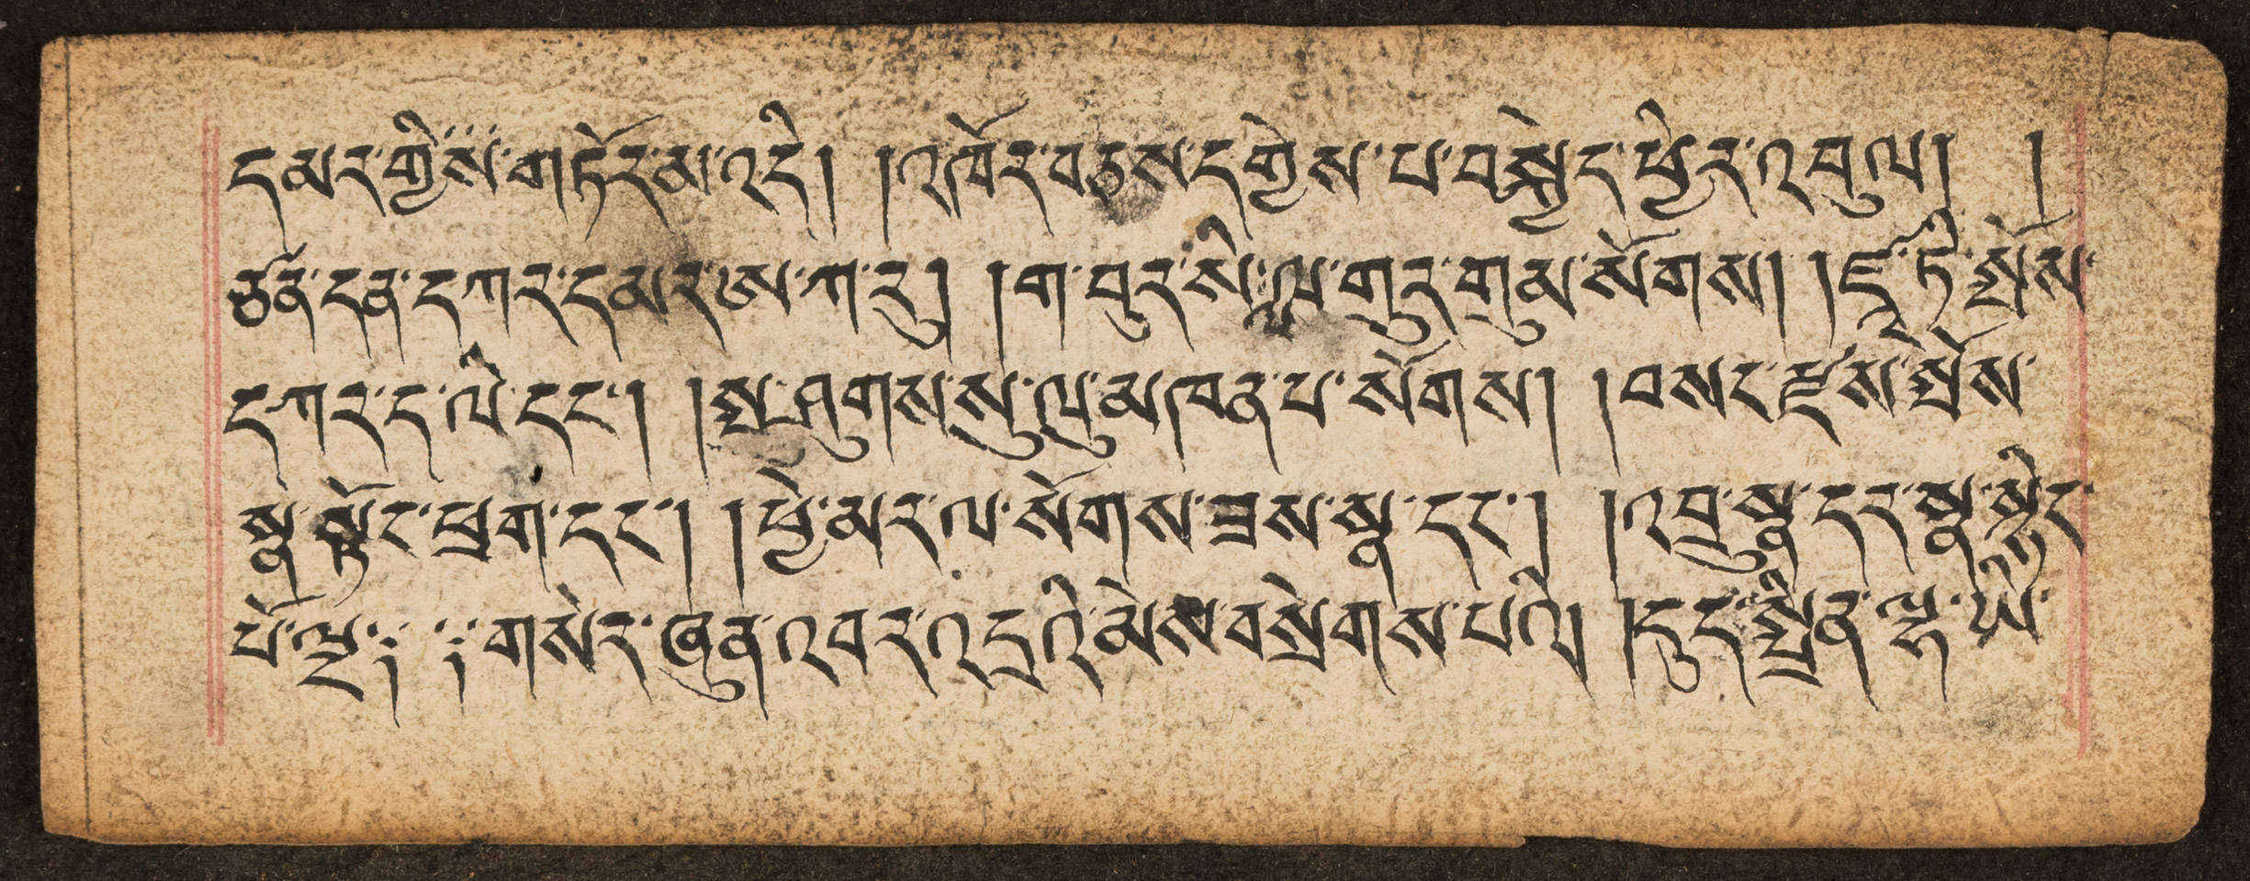 དམར་གྱིས་གཏོར་མ་འདི། །འཁོར་བཅས་དགྱེས་པ་བསྐྱེད་ཕྱིར་འབུལ། །
ཙནྡན་དཀར་དམར་ཨ་ཀ་རུ། །ག་བུར་སི་ལ་གུར་གུམ་སོགས། །ཛཱ་ཏི་སྤོས་
དཀར་ད་ལི་དང་། །སྤ་ཤུགས་སུ་ལུ་མཁན་པ་སོགས། །བསང་རྫས་སྤོས་
སྣ་སྟོང་ཕྲག་དང་། །ཕྱེ་མར་ལ་སོགས་ཟས་སྣ་དང་། །འབྲུ་སྣ་དར་སྣ་སྙིང་
པོ་ལྔ༔ ༔གསེར་ཞུན་འབར་འདྲའི་མེས་བསྲེགས་པའི། །དུད་སྤྲིན་ལྷ་ཡི་